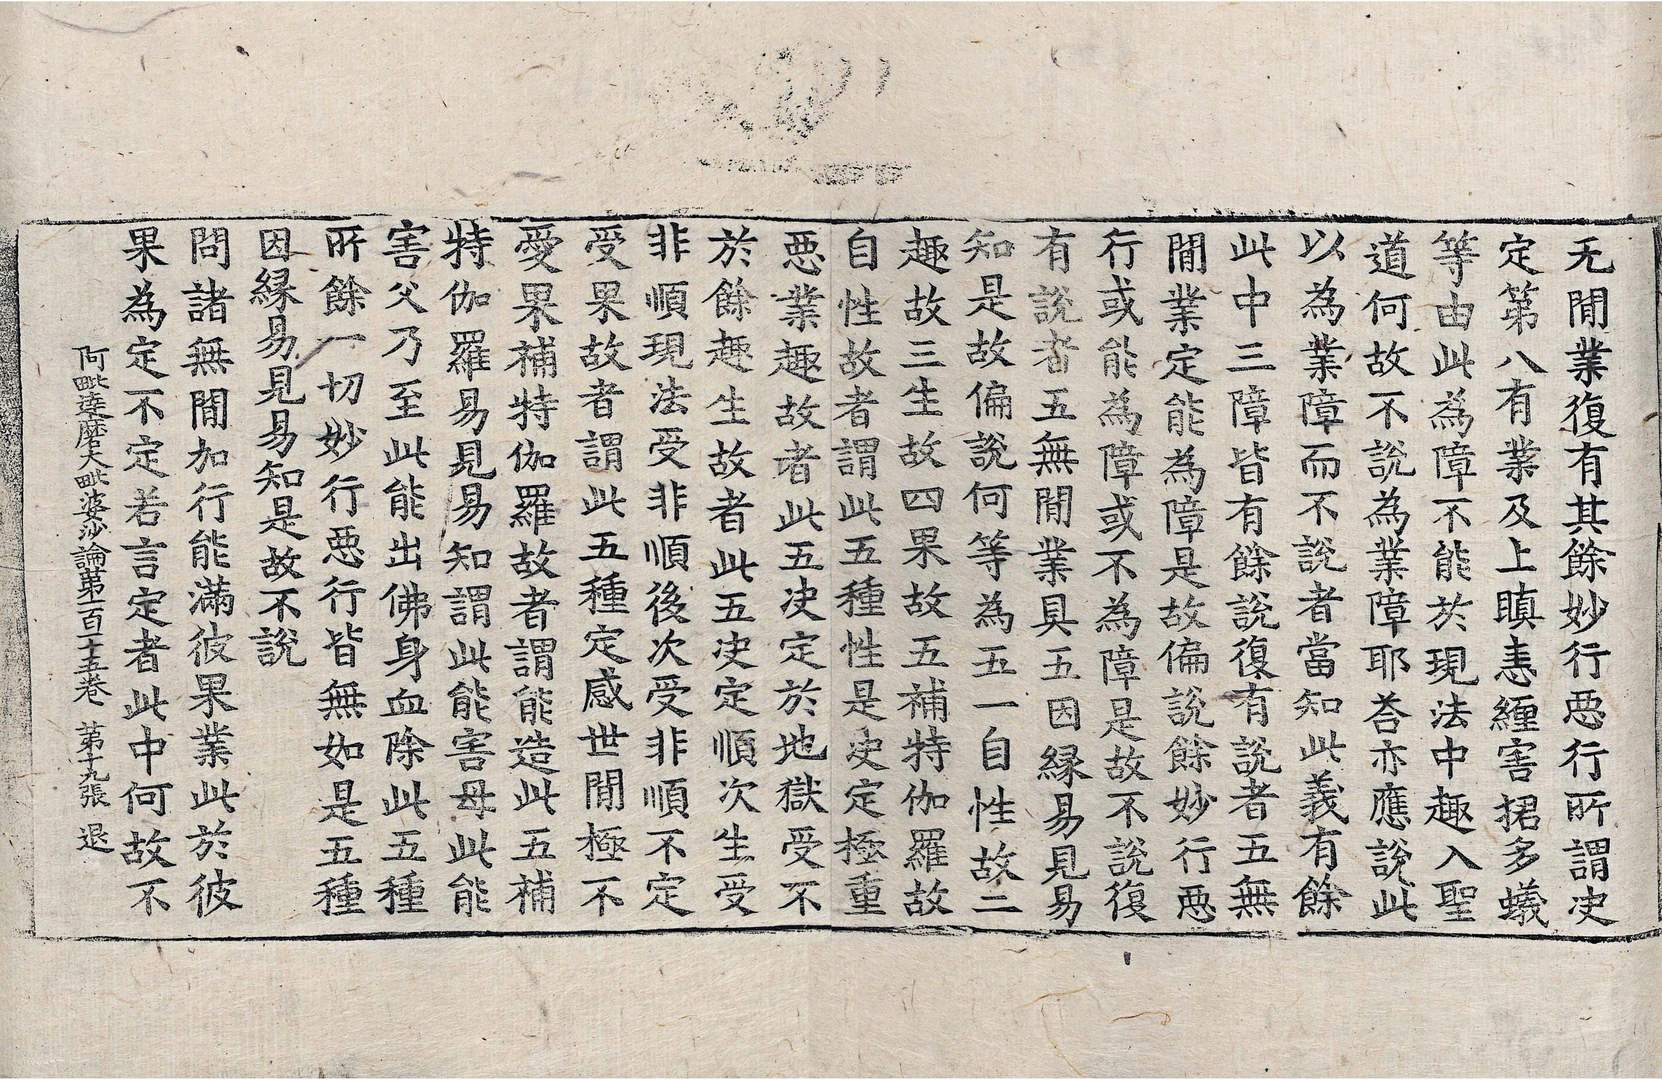 无閒業復有其餘妙行惡行所謂决
定第八有業及上瞋恚纏害捃多蟻
等由此為障不能於現法中趣入聖
道何故不說為業障耶荅亦應說此
以為業障而不說者當知此義有餘
此中三障皆有餘說復有說者五無
閒業定能為障是故偏說餘妙行惡
行或能為障或不為障是故不說復
有說者五無閒業具五因緣易見易
知是故偏說何等為五一自性故二
趣故三生故四果故五補特伽羅故
自性故者謂此五種性是决定極重
惡業趣故者此五决定於地獄受不
於餘趣生故者此五决定順次生受
非順現法受非順後次受非順不定
受果故者謂此五種定感世閒極不
愛果補特伽羅故者謂能造此五補
特伽羅易見易知謂此能害母此能
害父乃至此能出佛身血除此五種
所餘一切妙行惡行皆無如是五種
因緣易見易知是故不說
問諸無閒加行能滿彼果業此於彼
果為定不定若言定者此中何故不
阿毗達磨大毗婆沙論第一百十五卷 第十九張 退